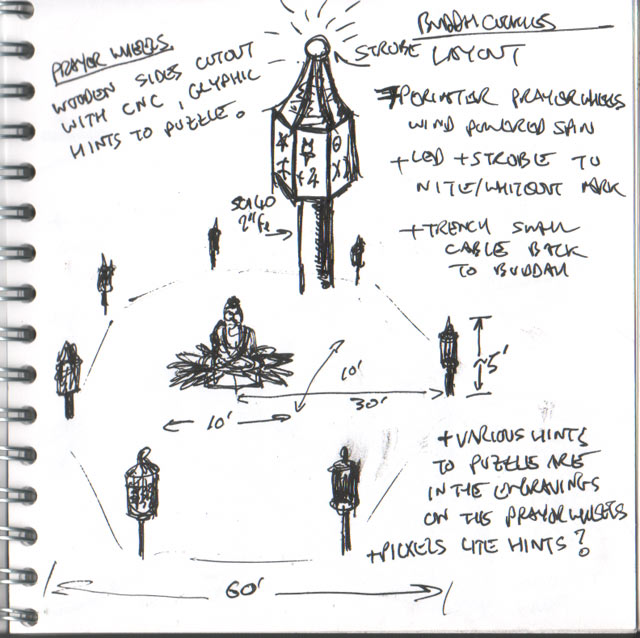 PRAYER WHEELS
WOODEN SIDES CUTOUT
WITH CNC, GLYPHIC
HINTS TO PUZZLE.
STROBE LAYOUT
PERIMETER PRAYER WHEELS
WIND POWERED SPIN
+ LED + STROBE TO
NITE/WHITEOUT MARK
+ TRENCH SMALL
CABLE BACK
TO BUDDAH
SCH40
2" Fe
~5'
10'
30'
10'
+ VARIOUS HINTS
TO PUZZLE ARE
IN THE ENGRAVINGS
ON THE PRAYOR WHEELS
+ PICKELS LITE HINTS?
60'